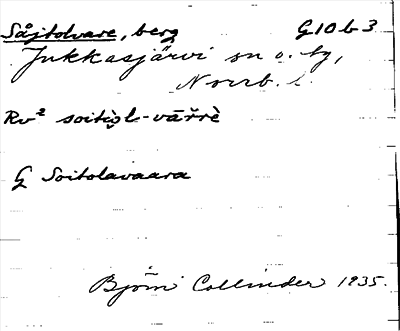 Såjtolvare, berg G10b3
Jukkasjärvi sn o. tg,
Norrb. l.
Rv² soitìo̭l-vār̄rè
G Soitolavaara
Björn Collinder 1935.